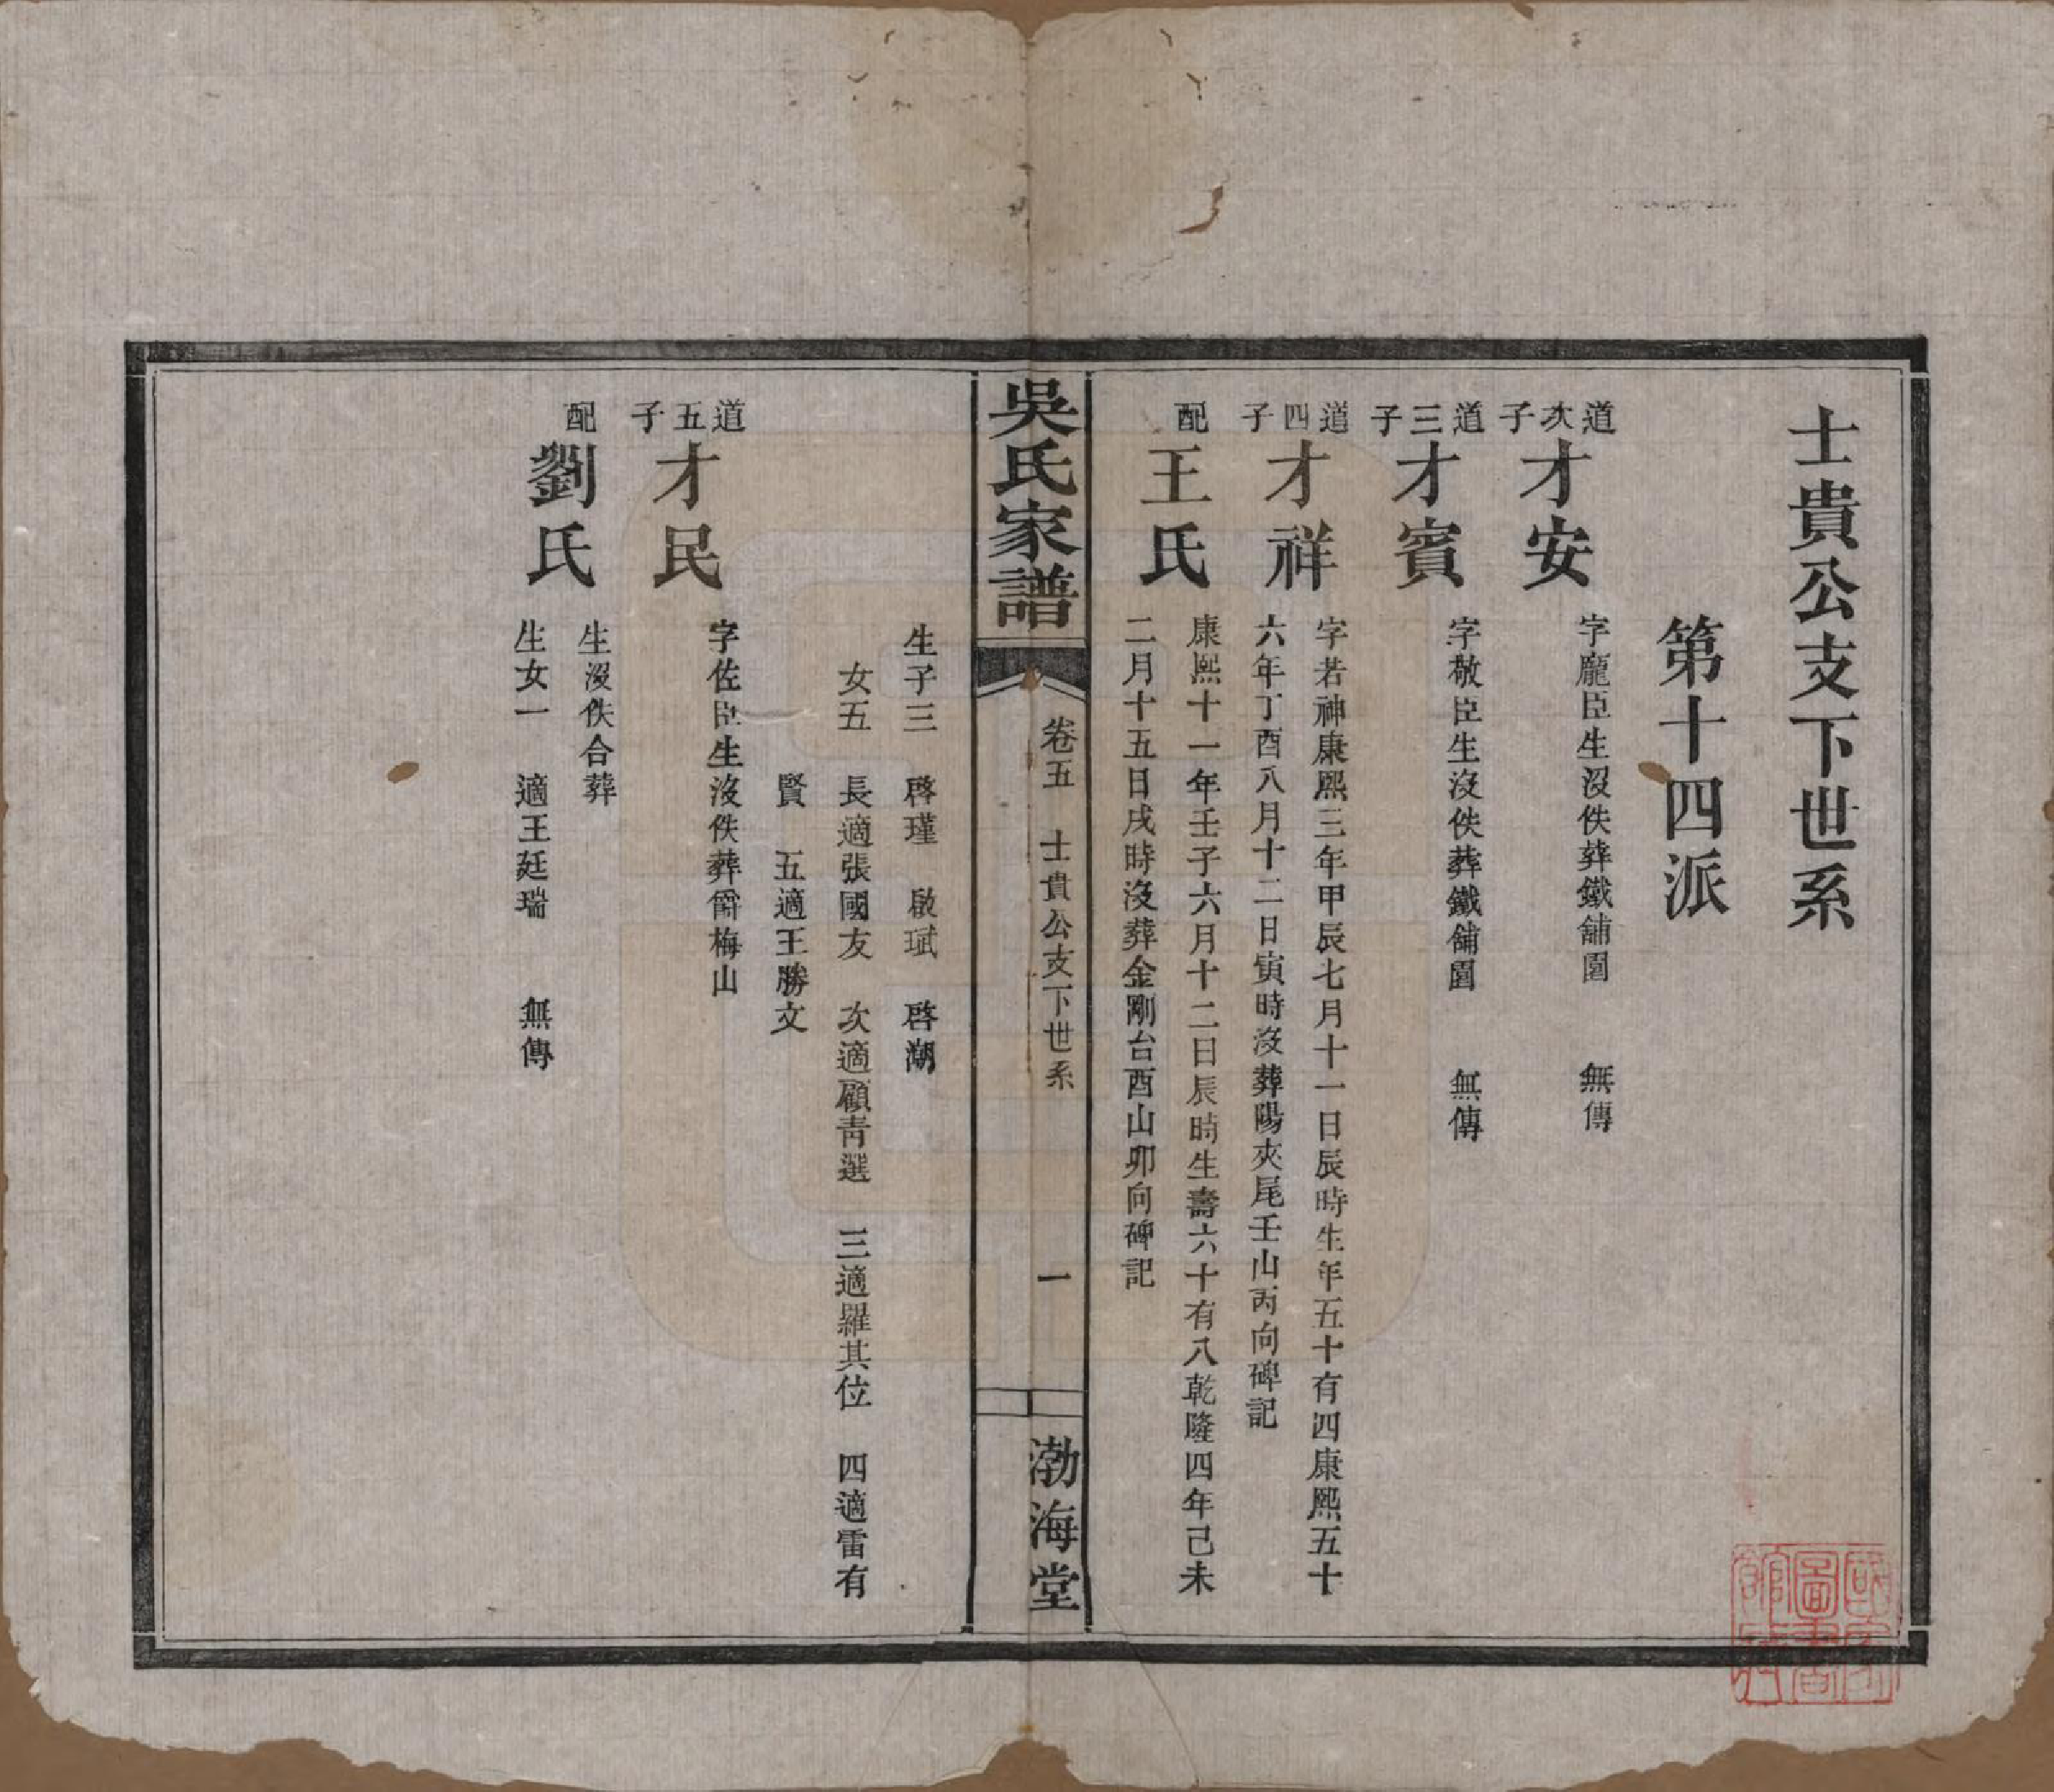 士貴公支下世系
第十四派
道次子
才安
字龐臣生沒佚葬鐵舖園　無傳
道三子
才賓
字敬臣生沒佚葬鐵舖園　無傳
道四子
才祥
字若神康熙三年甲辰七月十一日辰時生年五十有四康熙五十
六年丁酉八月十二日寅時沒葬陽夾尾壬山丙向碑記
配
王氏
康熙十一年壬子六月十二日辰時生壽六十有八乾隆四年己未
二月十五日戌時沒葬金剛台酉山卯向碑記
吳氏家譜
卷五　士貴公支下世系
一
渤海堂
生子三　啓瑾　啟珷　啓湖
女五　長適張國友　次適顧青選　三適羅其位　四適雷有
賢　五適王勝文
道五子
才民
字佐臣生沒佚葬爵梅山
配
劉氏
生沒佚合葬
生女一　適王廷瑞　無傳
國家圖書館藏